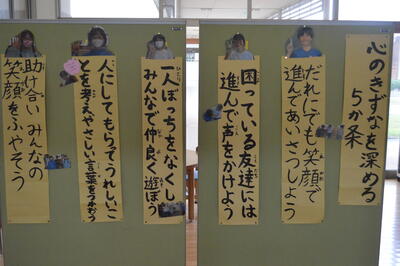 心のきずなを深める
5か条
だれにでも笑顔で
進んであいさつしよう
困っている友達には
進んで声をかけよう
一人ぼっちをなくし
みんなで仲良く遊ぼう
人にしてもらってうれしいこ
とを考えやさしい言葉をつかおう
助け合いみんなの
笑顔をふやそう